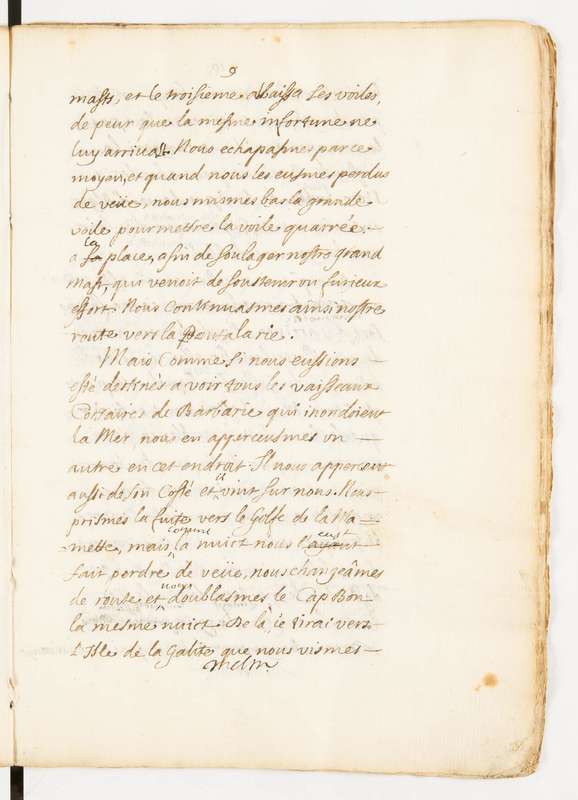 9
masts, et le troisieme abaissa ses voiles,
de peur que la mesme infortune ne
luy arrivast. Nous echapasmes par ce
moyen, et quand nous les eusmes perdus
de veüe, nous mismes bas la grande
voile pour mettre la voile quarrée
a sa la place, afin de soulager nostre grand
mast, qui venoit de soustenir un furieux
effort. Nous continuasmes ainsi nostre
route vers la
Mais comme si nous eussions
esté destinés a voir tous les vaisseaux
Corsaires de Barbarie qui inondoient
la Mer nous en apperceusmes un
autre en cet endroit. Il nous apperceut
aussi de son costé et il vint sur nous. Nous
prismes la fuite vers le Golfe de la Ma
mette, mais comme la nuict nous l'ayant eust
fait perdre de veüe, nous changeâmes
de route et nous doublasmes le Cap Bon
la mesme nuict. De là je tirai vers
l'Isle de la Galite que nous vismes